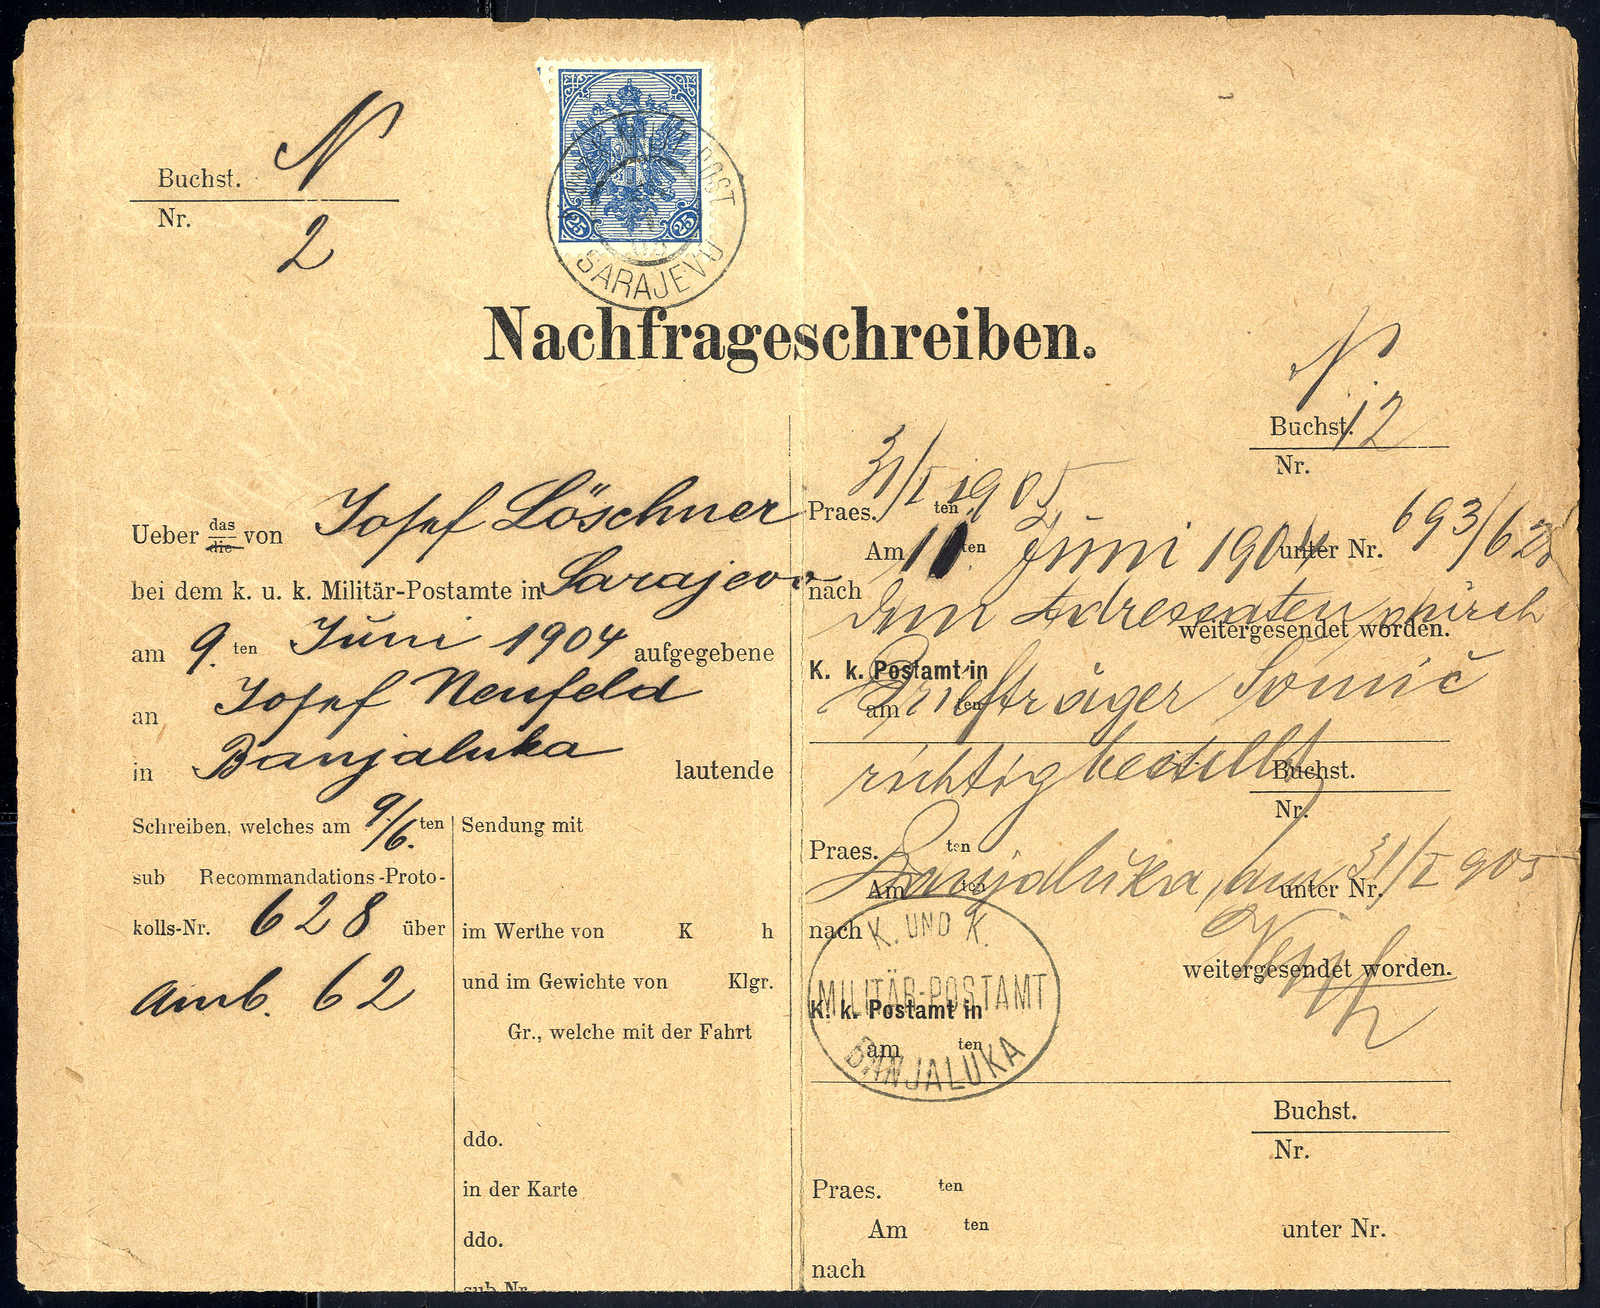 Buchst. N
Nr. 2
25 25
K. UND K. MILIT. POST
SARAJEVO
Nachfrageschreiben.
Ueber das die von Josef Löschner
bei dem k. u. k. Militär-Postamte in Sarajevo
am 9. ten Juni 1904 aufgegebene
an Josef Neufeld
in Banjaluka lautende
Schreiben, welches am 9/6. ten
sub Recommandations-Proto-
kolls-Nr. 628 über
Amb. 62
Sendung mit
im Werthe von K h
und im Gewichte von Klgr.
Gr., welche mit der Fahrt
ddo.
in der Karte
ddo.
sub Nr.
N
Buchst. 12
Nr.
Praes. 31/I ten 1905
Am 10. ten Juni 1904 unter Nr. 693/62
nach
dem Adressaten durch
weitergesendet worden.
K. k. Postamt in
Briefträger Tomić
am ten
richtig bestellt
Buchst.
Nr.
Praes. ten
Banjaluka, am 31/I 905
Am ten unter Nr.
nach
weitergesendet worden.
K. UND K.
MILITÄR-POSTAMT
BANJALUKA
K. k. Postamt in
am ten
Buchst.
Nr.
Praes. ten
Am ten unter Nr.
nach